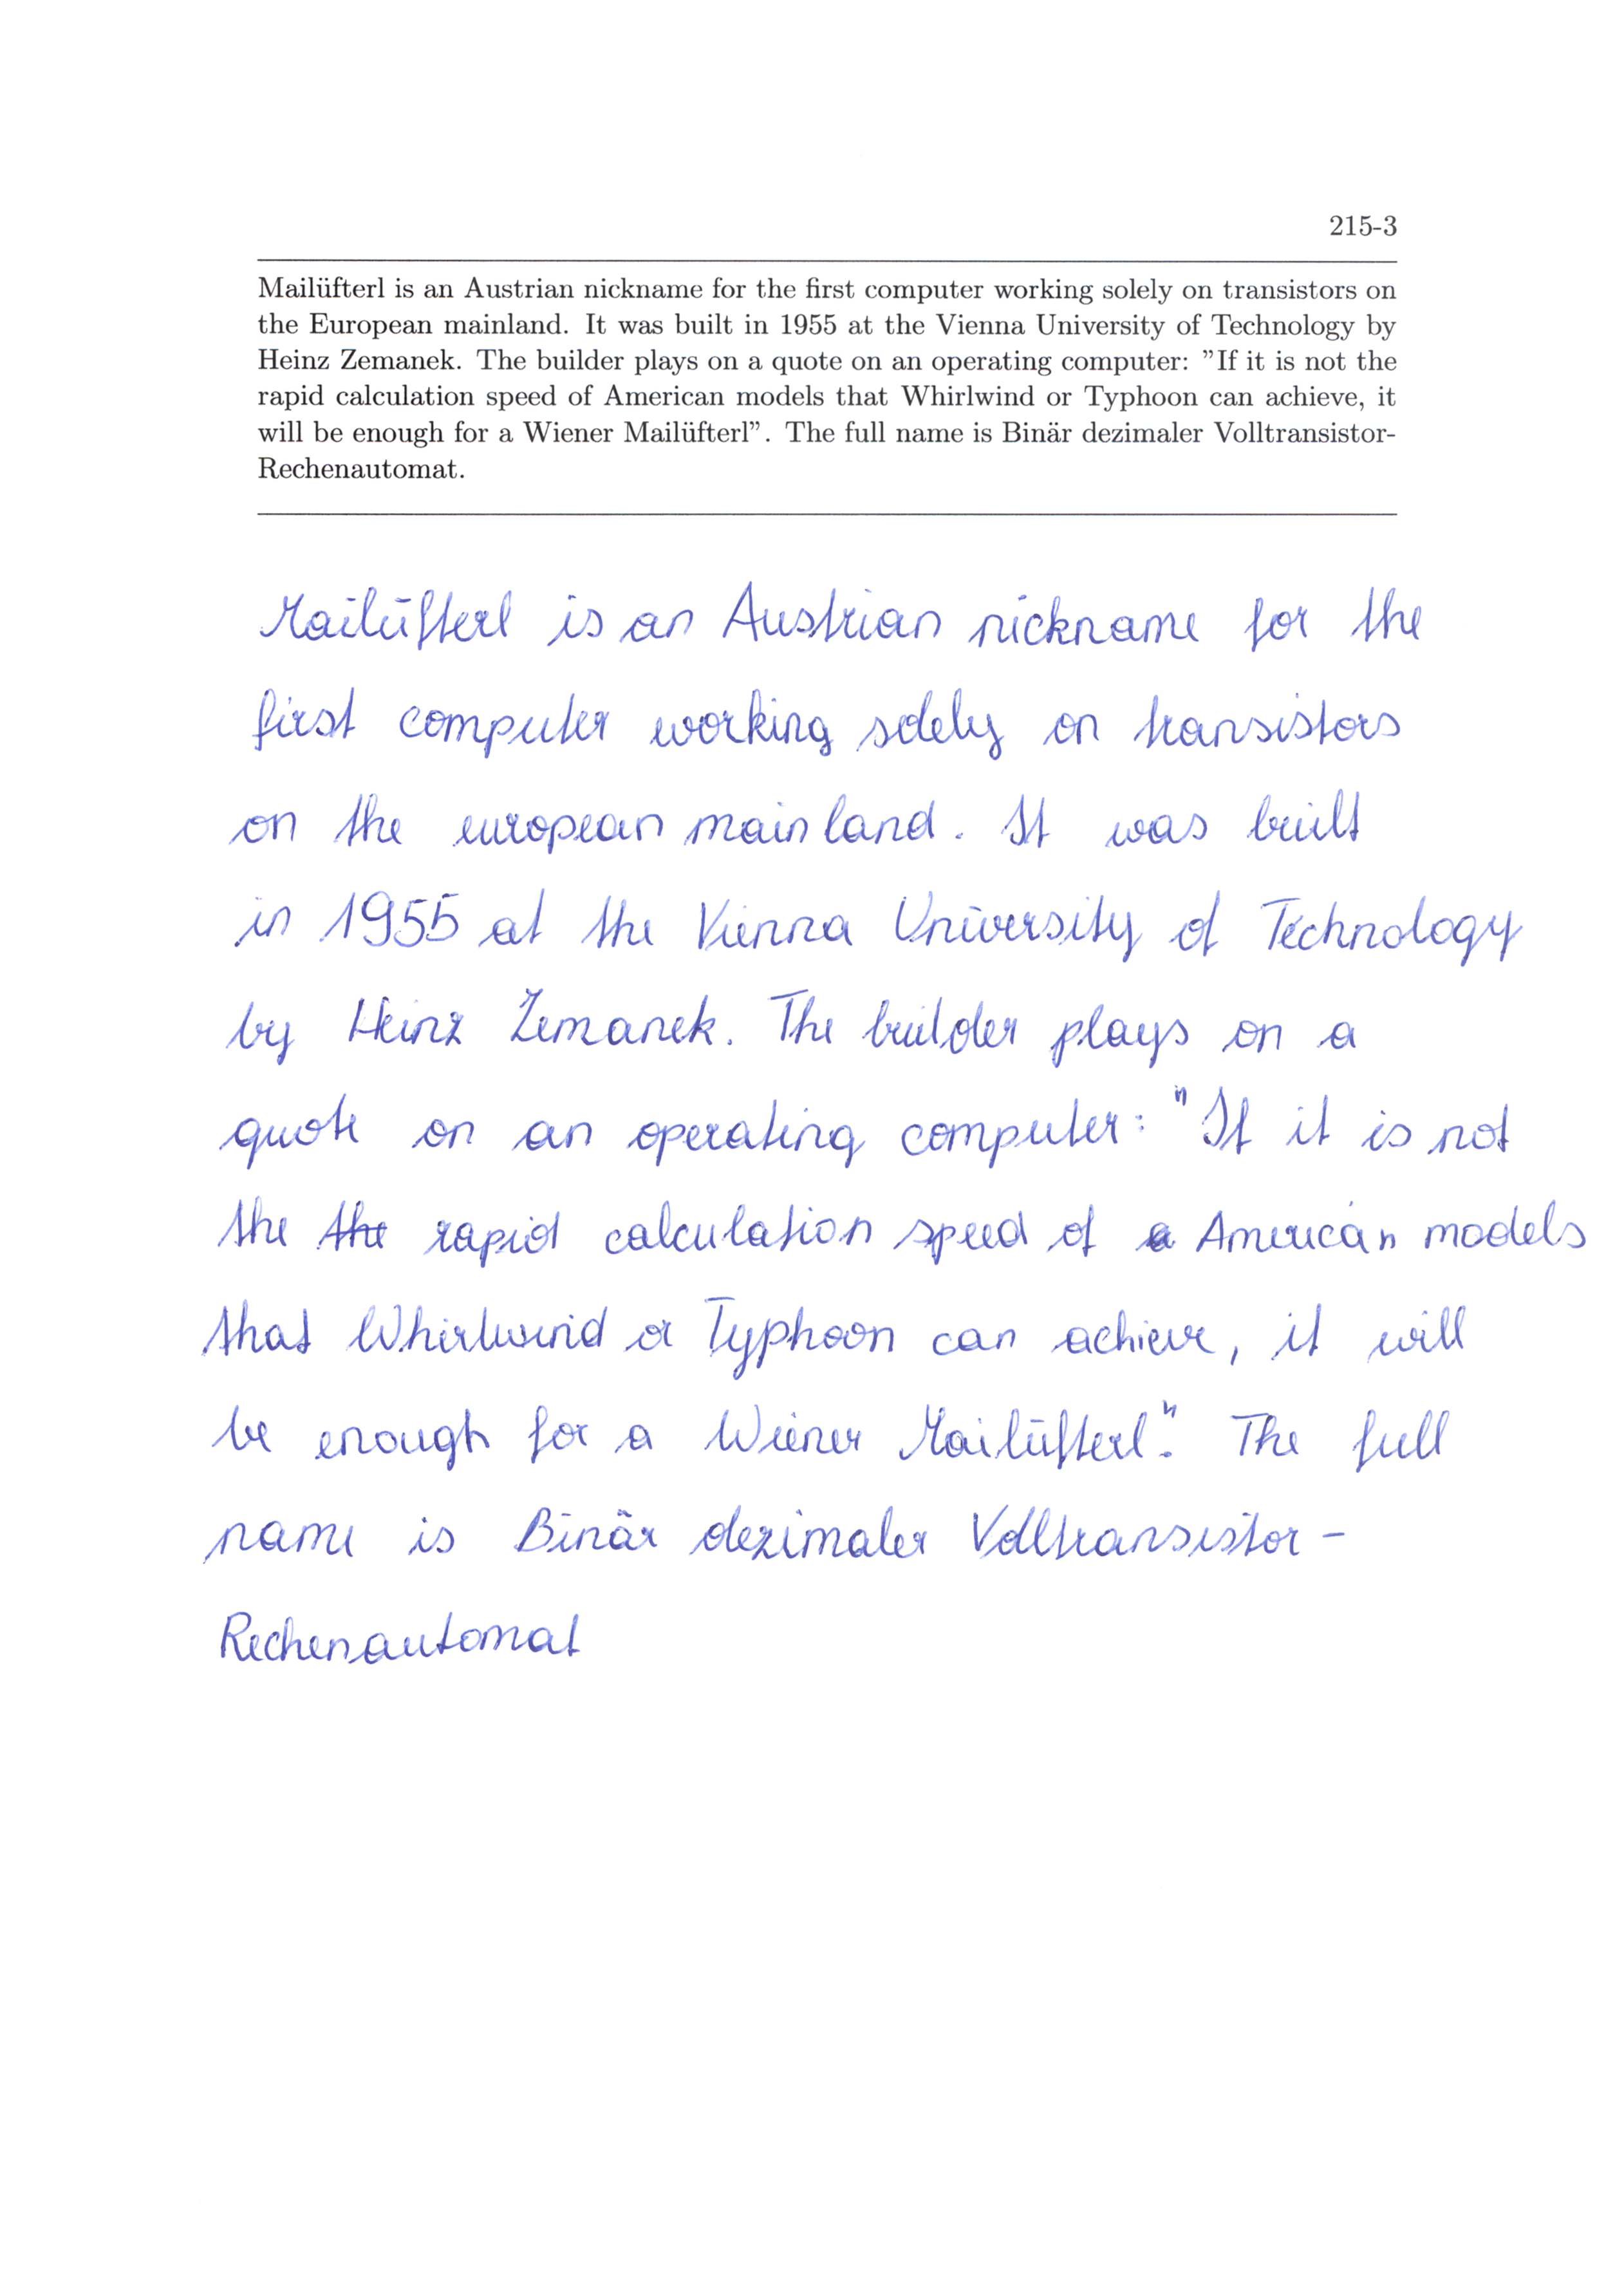 215-3
Mailüfterl is an Austrian nickname for the first computer working solely on transistors on
the European mainland. It was built in 1955 at the Vienna University of Technology by
Heinz Zemanek. The builder plays on a quote on an operating computer: ”If it is not the
rapid calculation speed of American models that Whirlwind or Typhoon can achieve, it
will be enough for a Wiener Mailüfterl”. The full name is Binär dezimaler Volltransistor-
Rechenautomat.
Mailüfterl is an Austrian nickname for the
first computer working solely on transistors
on the european mainland. It was built
in 1955 at the Vienna University of Technology
by Heinz Zemanek. The builder plays on a
quote on an operating computer: "If it is not
the the rapid calculation speed of a American models
that Whirlwind or Typhoon can achieve, it will
be enough for a Wiener Mailüfterl". The full
name is Binär dezimaler Volltransistor-
Rechenautomat